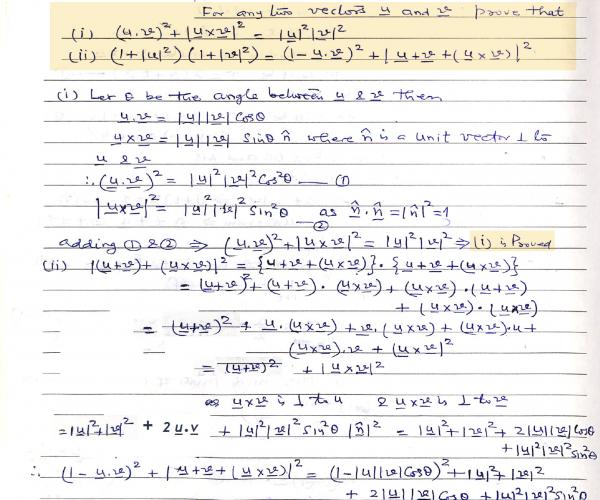 For any two vectors u and v prove that
(i) (u.v)² + |u×v|² = |u|²|v|²
(ii) (1+|u|²)(1+|v|²) = (1-u.v)² + |u+v+(u×v)|²
(i) Let θ be the angle between u & v then
u.v = |u||v| Cosθ
u×v = |u||v| Sinθ n̂ where n̂ is a unit vector ⊥ to
u & v
∴ (u.v)² = |u|²|v|² Cos²θ — ①
|u×v|² = |u|²|v|² Sin²θ — ② as n̂.n̂ = |n̂|² = 1
adding ① & ② ⇒ (u.v)² + |u×v|² = |u|²|v|² ⇒ (i) is Proved
(ii) |(u+v)+(u×v)|² = {u+v+(u×v)}.{u+v+(u×v)}
= (u+v)² + (u+v).(u×v) + (u×v).(u+v)
+ (u×v).(u×v)
= (u+v)² + u.(u×v) + v.(u×v) + (u×v).u +
(u×v).v + |u×v|²
= (u+v)² + |u×v|²
as u×v is ⊥ to u & u×v is ⊥ to v
= |u|²+|v|² + 2u.v + |u|²|v|² Sin²θ |n̂|² = |u|²+|v|²+2|u||v|Cosθ
+|u|²|v|² Sin²θ
∴ (1-u.v)² + |u+v+(u×v)|² = (1-|u||v|Cosθ)² + |u|²+|v|²
+ 2|u||v| Cosθ + |u|²|v|² Sin²θ